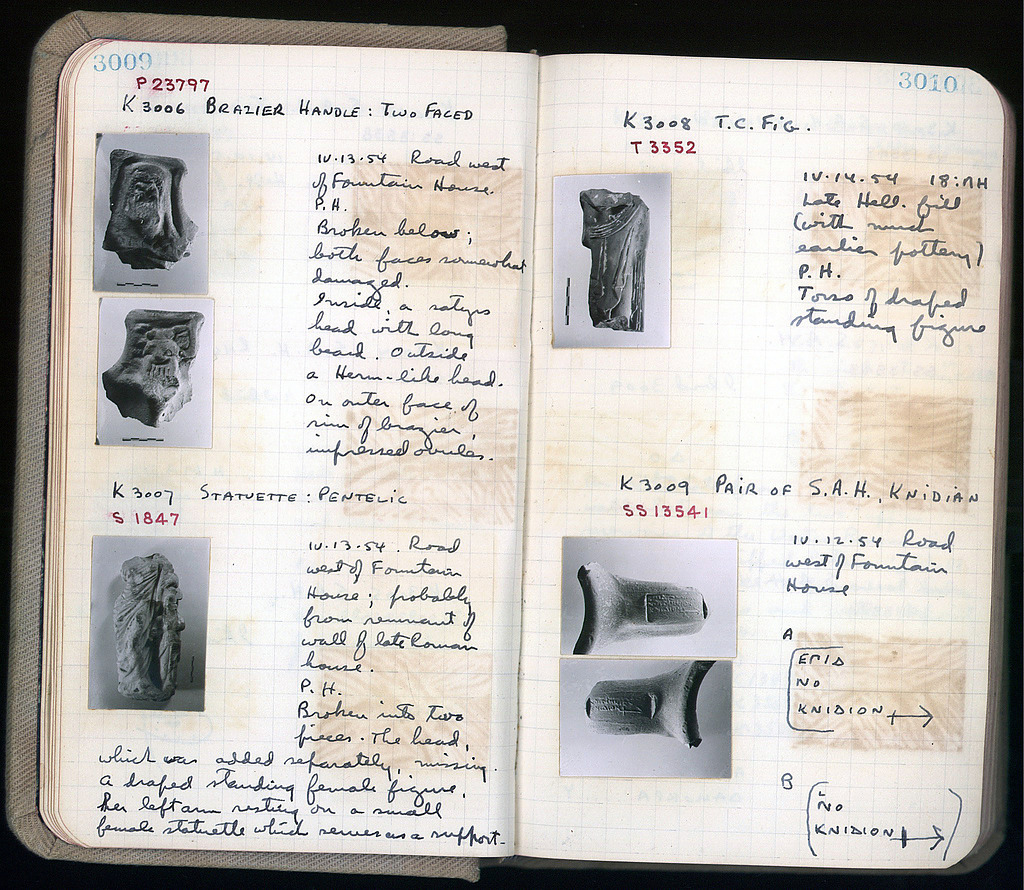 3009
P 23797
K 3006 BRAZIER HANDLE : TWO FACED
IV.13.54 Road west
of Fountain House.
P.H.
Broken below;
both faces somewhat
damaged.
Inside, a satyrs
head with long
beard. Outside
a Herm-like head.
On outer face of
rim of brazier,
impressed ovules.
K 3007 STATUETTE : PENTELIC
S 1847
IV.13.54. Road
west of Fountain
House; probably
from remnant of
wall of late Roman
house.
P.H.
Broken into two
pieces. The head,
which was added separately, missing.
A draped standing female figure,
her left arm resting on a small
female statuette which serves as a support.
3010
K 3008 T.C. FIG.
T 3352
IV.14.54 18:ΛΗ
Late Hell. fill
(with much
earlier pottery)
P.H.
Torso of draped
standing figure
K 3009 PAIR OF S.A.H., KNIDIAN
SS 13541
IV.12.54 Road
west of Fountain
House
A
ΕΠΙΔ
ΝΟ
ΚΝΙDΙΟΝ
B
ΝΟ
ΚΝΙDΙΟΝ